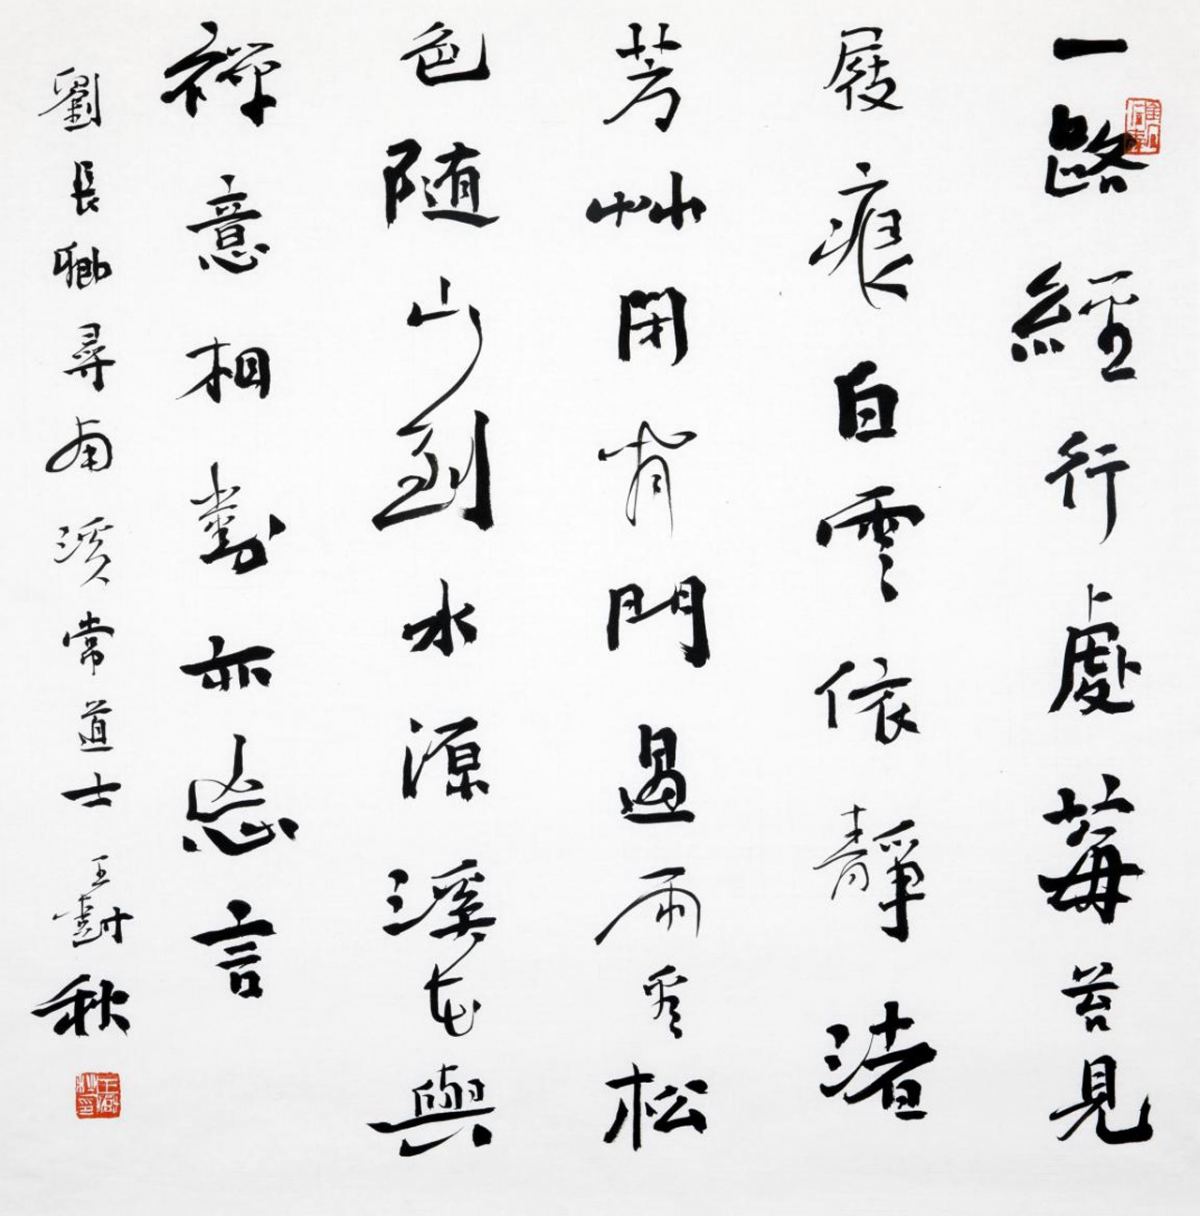 一路經行處莓苔見
屐痕白雲依靜渚
芳艸閉有門過雨看松
色随山到水源溪花與
禪意相對亦忘言
劉長卿尋南溪常道士 王秋